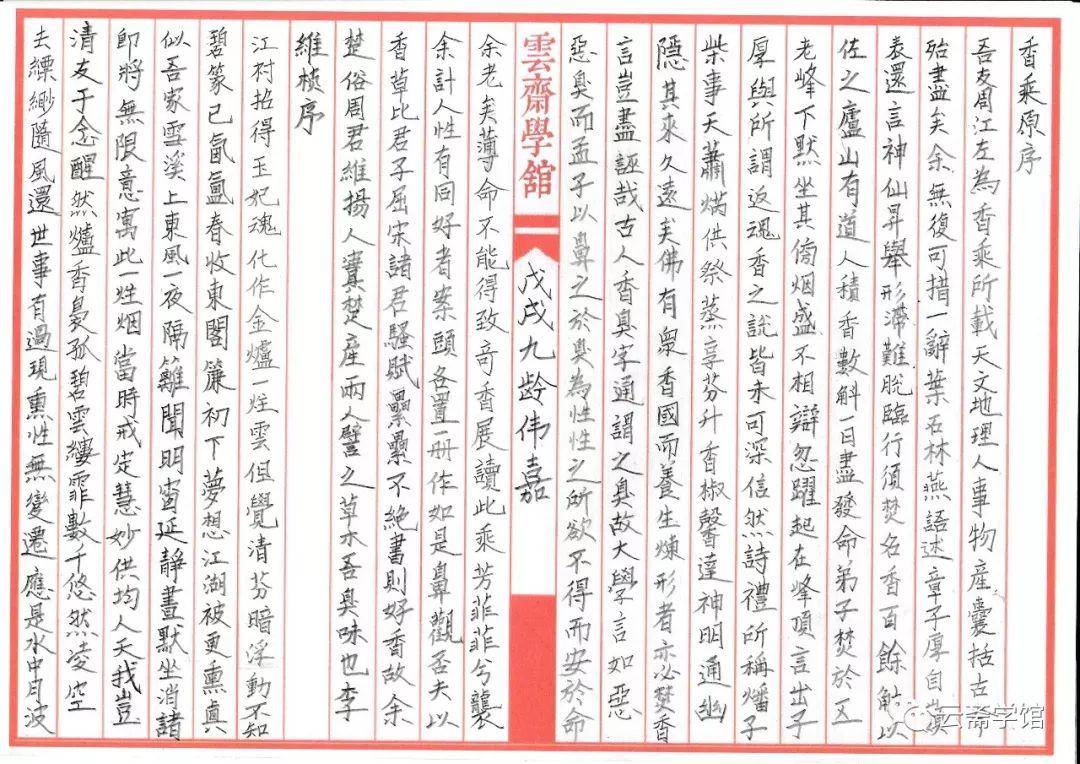 香乘原序
吾友周江左為香乘所載天文地理人事物產囊括古今
殆盡矣余無復可措一辭葉石林燕語述章子厚自嶺
表還言神仙昇舉形滯難脫臨行須焚名香百餘觔以
佐之廬山有道人積香數斛一日盡發命弟子焚於五
老峰下默坐其傍烟盛不相辯忽躍起在峰頂言出子
厚與所謂返魂香之說皆未可深信然詩禮所稱燔
柴事天蕭焫供祭蒸享芬升香椒馨達神明通幽
隱其來久遠矣佛有眾香國而養生煉形者亦必焚香
言豈盡誣哉古人香臭字通謂之臭故大學言如惡
惡臭而孟子以鼻之於臭為性性之所欲不得而安於命
雲齋學舘
戊戌九龄伟嘉
余老矣薄命不能得致奇香展讀此乘芳菲菲兮襲
余計人性有同好者案頭各置一冊作如是鼻觀否夫以
香草比君子屈宋諸君騷賦纍纍不絕書則好香故余
楚俗周君維揚人實楚產兩人譬之草木吾臭味也李
維楨序
江村招得玉妃魂化作金爐一炷雲但覺清芬暗浮動不知
碧篆已氤氳春收東閣簾初下夢想江湖被更熏真
似吾家雪溪上東風一夜隔籬聞明窗延靜晝默坐消諸
即將無限意寓此一炷烟當時戒定慧妙供均人天我豈
清友于念醒然爐香裊孤碧雲縷霏數千悠然凌空
去縹緲隨風還世事有過現熏性無變遷應是水中月波
云斋学馆